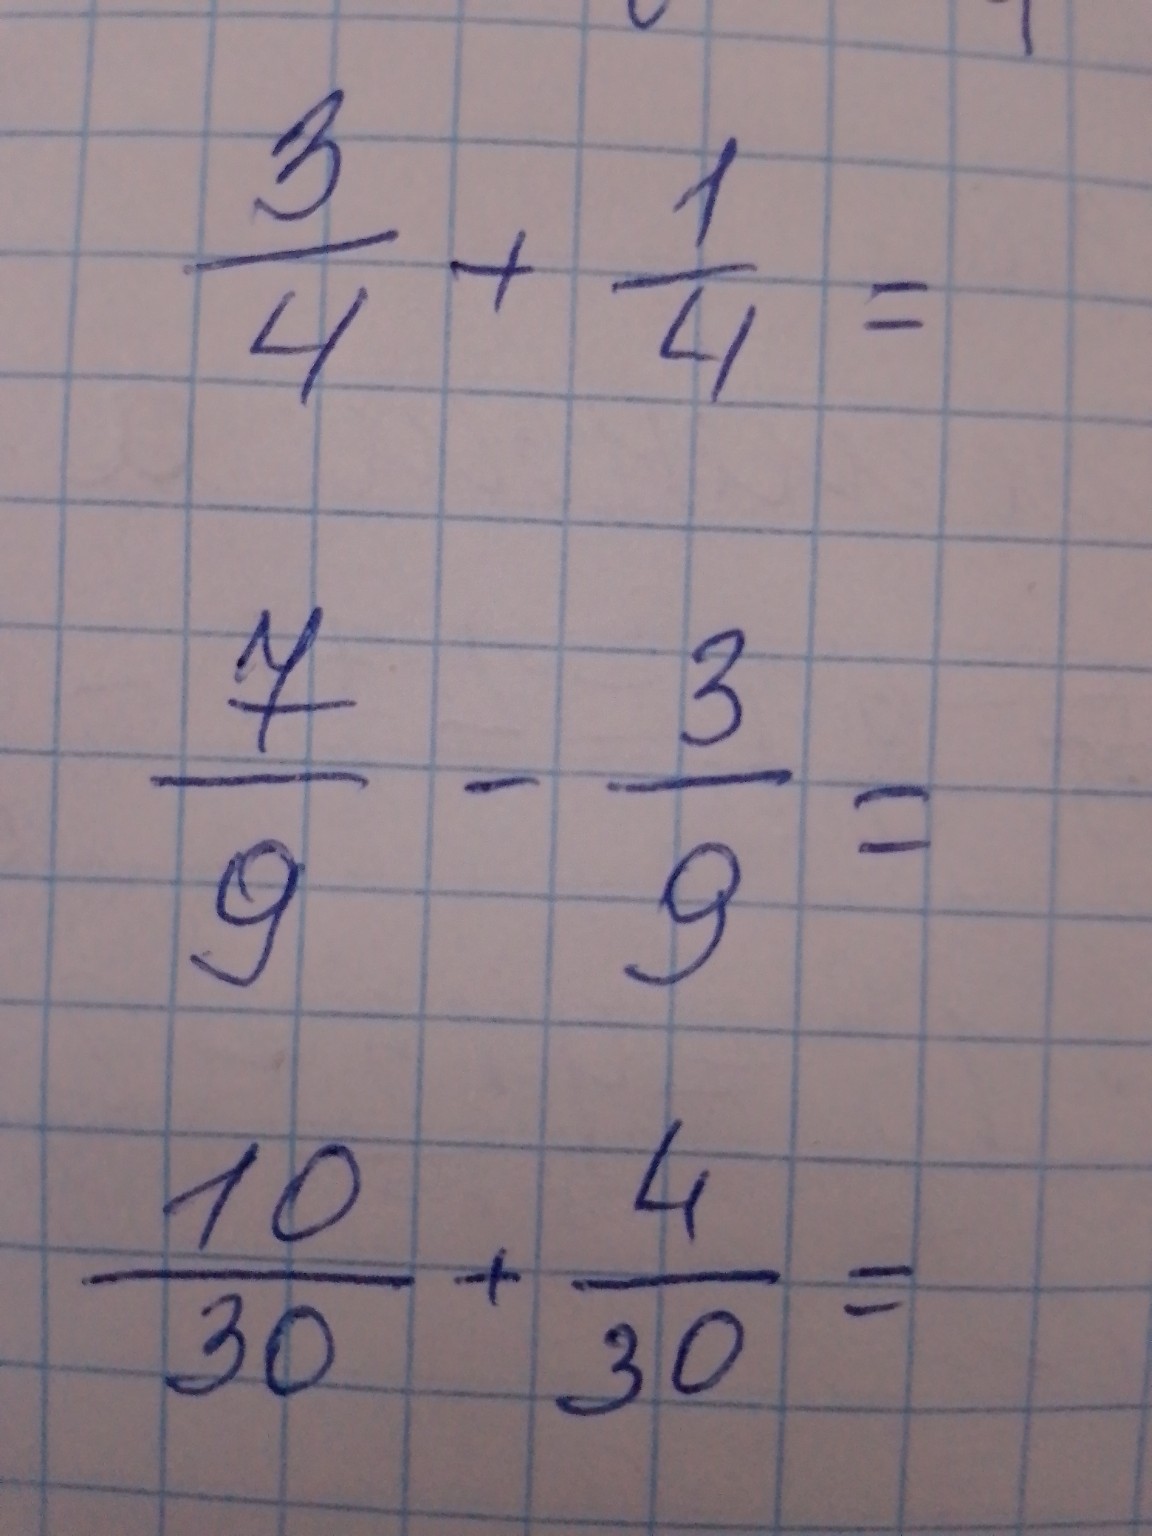 3/4 + 1/4 =
7/9 - 3/9 =
10/30 + 4/30 =